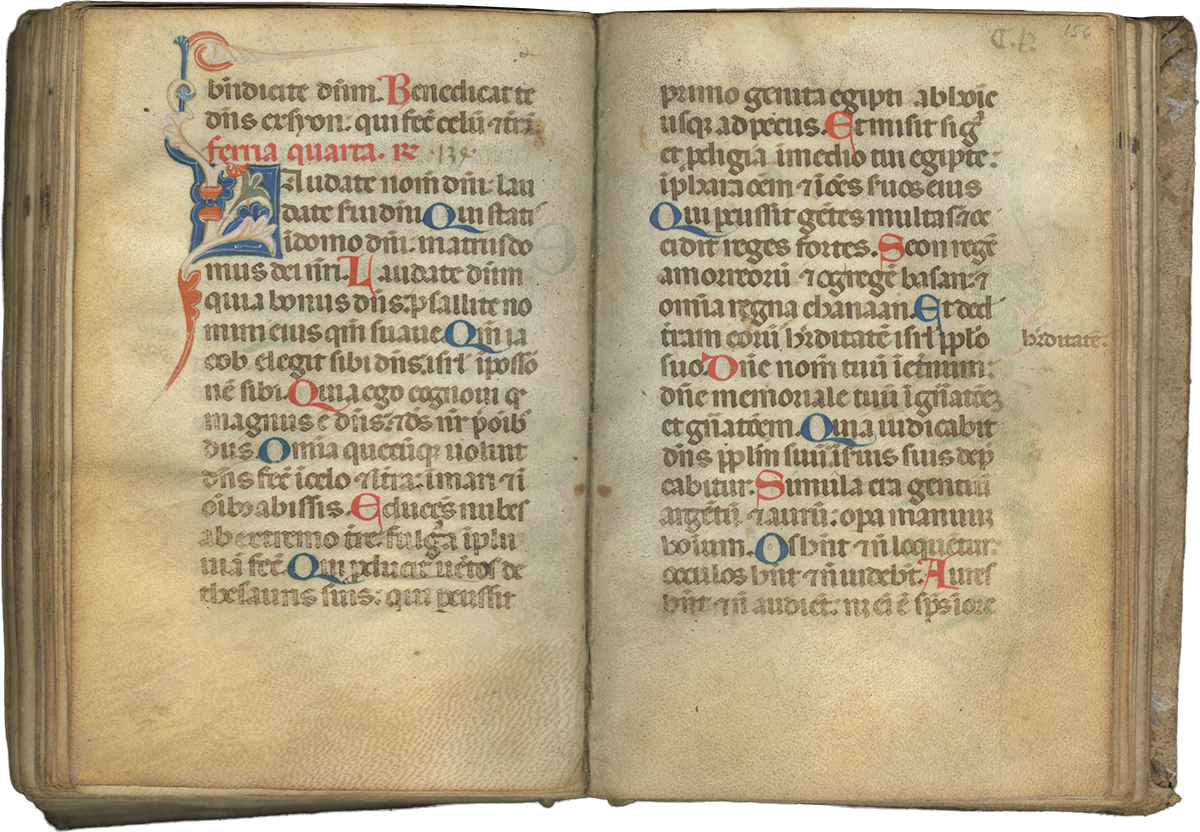 bñdicite dñm. Benedicat te
dñs ex syon. qui fec̄ celū ⁊ t̄rā.
feria quarta. ℞ 134
Laudate nom̄ dñi: lau
date s̄ui dñm Qui stati
ī domo dñi. in atriis do
mus dei nr̄i. Laudate dñm
quia bonus dñs: psallite no
mini eius qm̄ suave Qm̄ ia
cob elegit sibi dñs. isrl̄ ī possō
nē sibi. Quia ego cognovi q̄
magnus ē dñs: ⁊ ds̄ nr̄ p̄ oib̄
diis. Omīa quecūq̨ voluit
dñs fec̄ ī celo ⁊ ī t̄ra: ī mari ⁊ ī
oībꝫ abissis. Educēs nubes
ab extremo t̄re: fulgᵃ ī plu
viā fec̄. Qui pducit vētos de
thesauris suis: qui pcussit
C. P. 156
primo genita egipti ab hoīe
usq̨ ad pecus. Et misit sigᵃ
et pdigia ī medio tui egipte:
ī pharaonem ⁊ ī oēs s̄uos eius
Qui pcussit gētes multas: ⁊ oc
cidit reges fortes. Seon regē
amorreorū ⁊ og regē basan: ⁊
omīa regna chanaan. Et ded̄
t̄ram eorū hr̄ditatē isrl̄ pplo hr̄ditatē:
suo. Dñe nom̄ tuū ī et̄num:
dñe memoriale tuū ī gñatōē
et gñatōem. Quia iudicabit
dñs pplm̄ suū: ⁊ ī s̄uis suis dep
cabitur. Simulac̄ra gentiū
argētū ⁊ aurū: opa manuū
hoīum. Os hñt ⁊ ñ loquētur:
occulos hñt ⁊ ñ videbt̄. Aures
hñt ⁊ ñ audiēt: nꝫ ei ē sp̄s ī ore